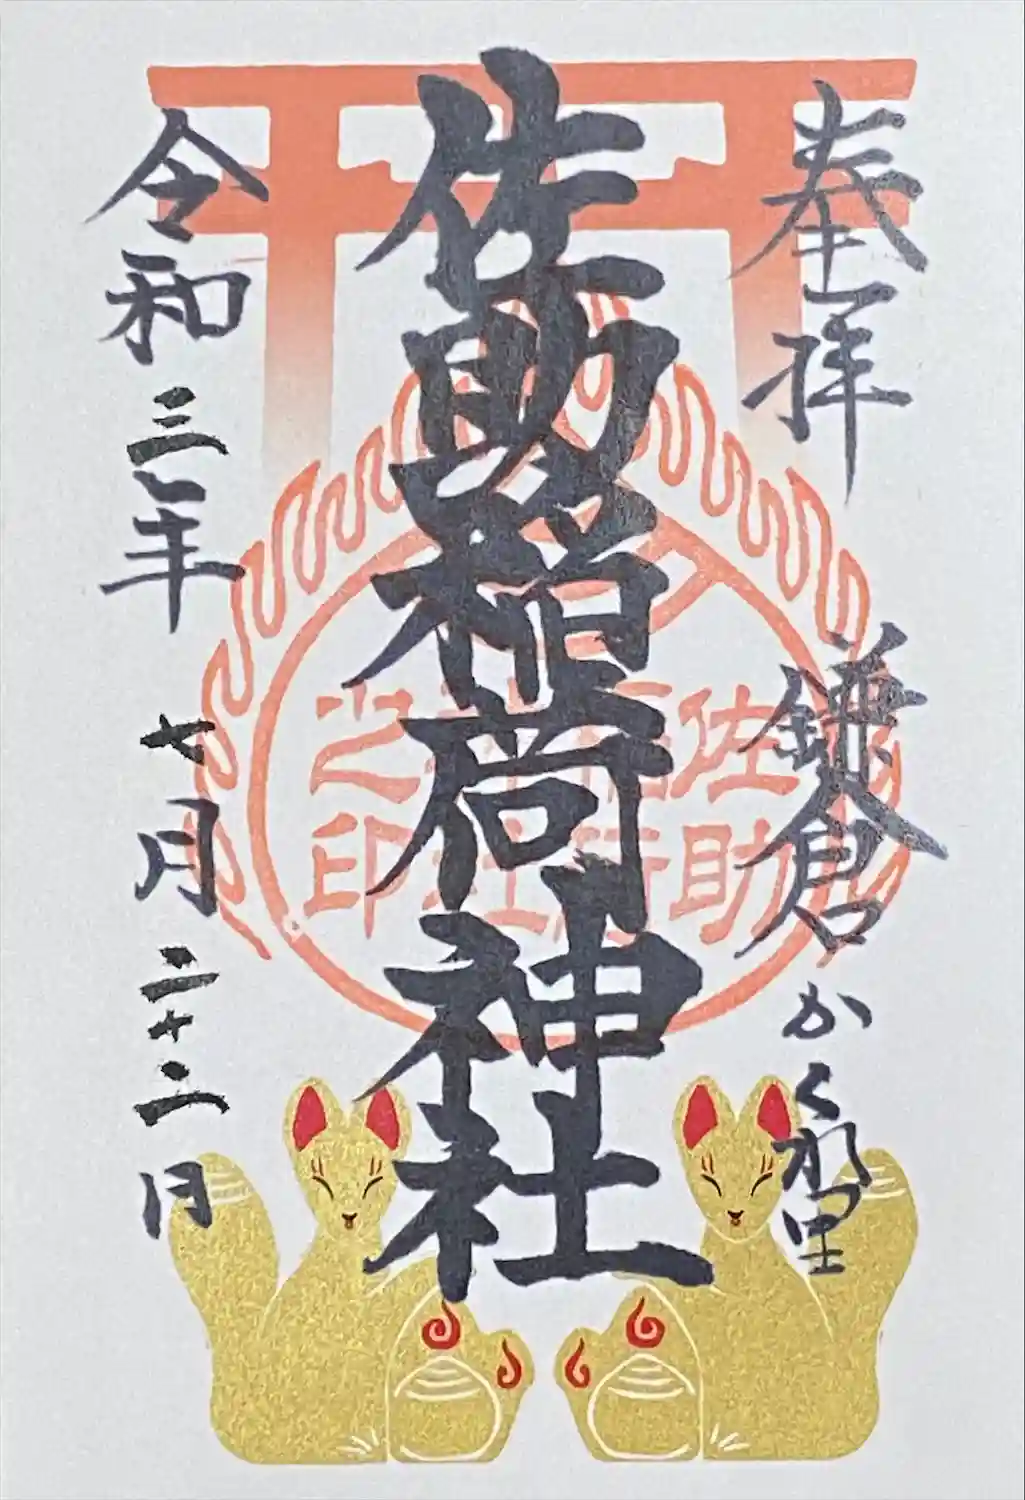 奉拝 鎌倉かくれ里
佐助稲荷神社
令和三年 七月二十二日
佐助
稲荷
神社
之印